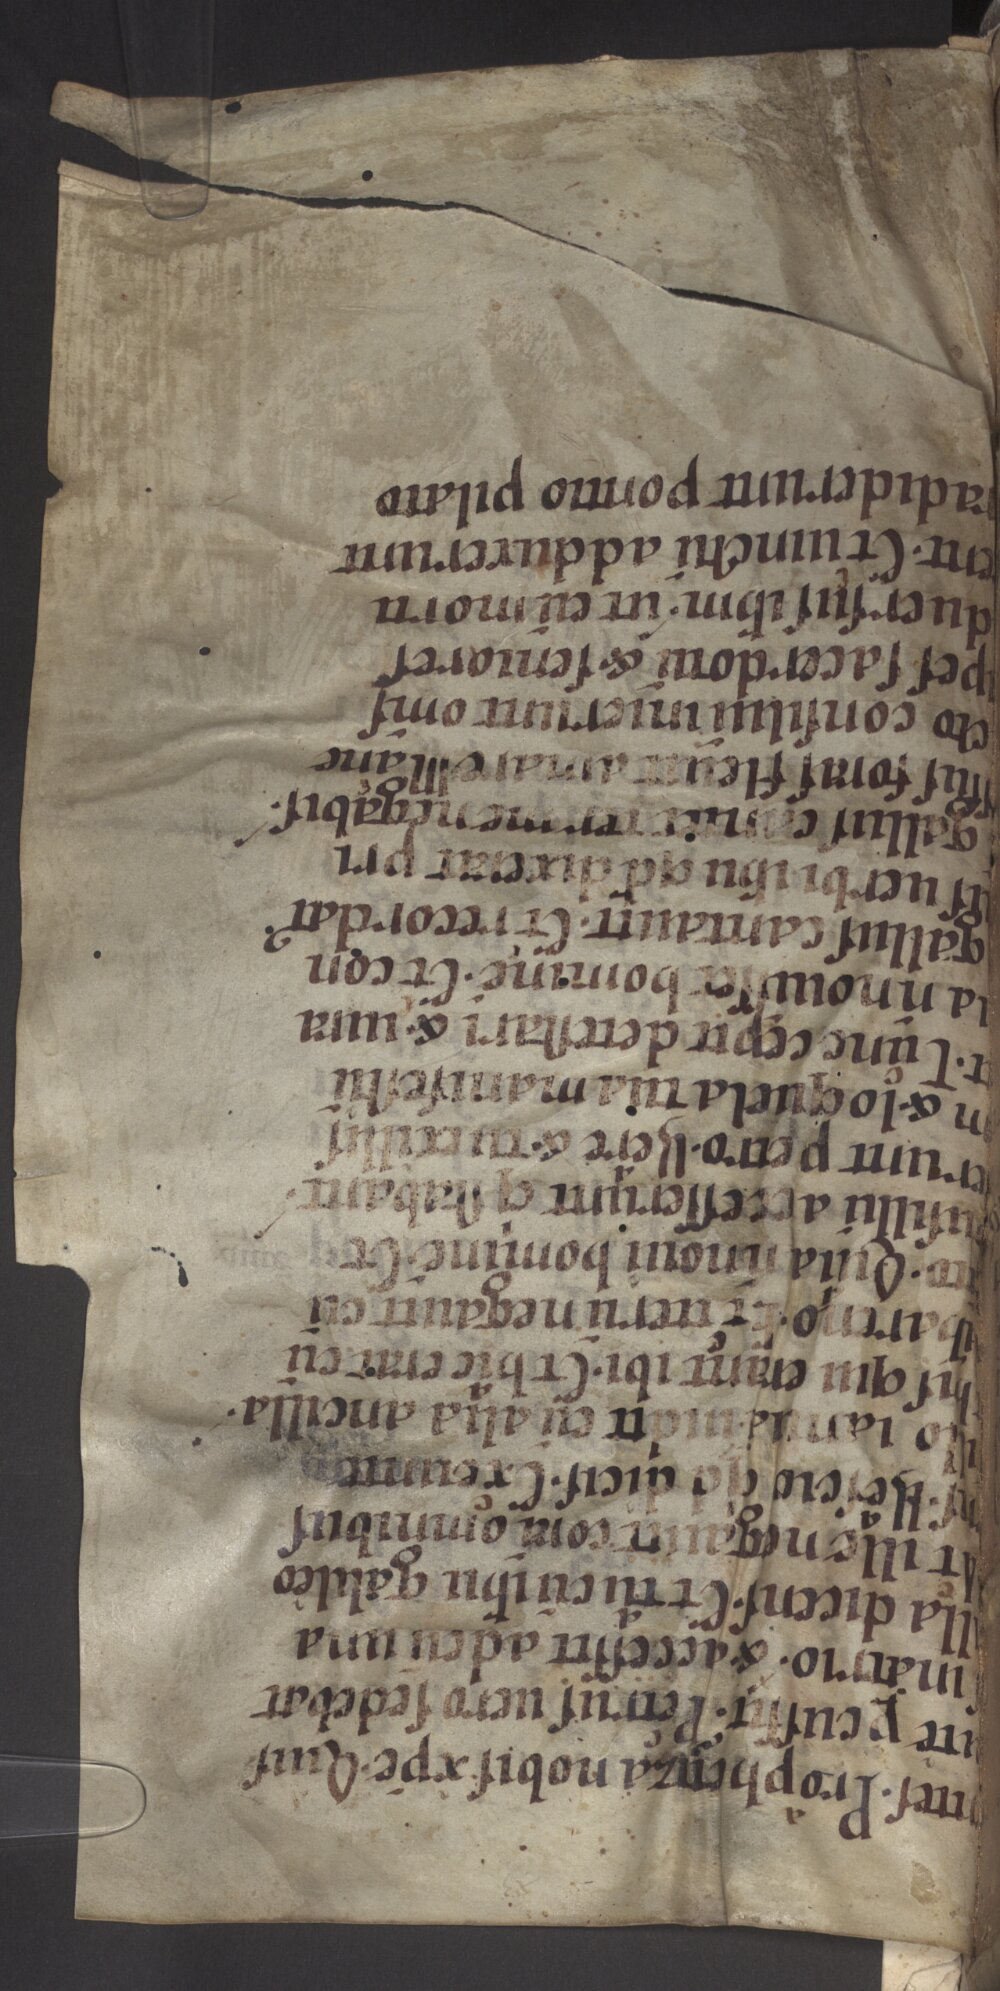 ntes. Prophetiza nobis xpe Quis
te ꝑcussit. Petrus uero sedebat
in atrio. & accessit ad eū una
lla dicens. Et tu cū ihu galileo
At ille negauit corā omnibus
ns. Nescio qd dicis. Exeunte
to ianuā uidit eū alia ancilla.
his qui erant ibi. Et hic erat cū
nazareno. Et iterū negauit cū
Quia n noui hominē. Et
usillū accesserunt q stabant.
erunt petro. Uere & tu ex illis
n & loquela tua manifestū
t. Tunc cepit detestari & iura
ia n nouisset hominē. Et con
gallus cantauit. Et recordat᷒
us uerbi ihu qd dixerat pri
gallus cantet ter me negabis.
sus foras fleuit amare Mane
cto consiliū inierunt oms
pes sacerdotū & seniores
duersus ihm. ut eū morti
ent. Et uinctū adduxerunt
radiderunt pontio pilato